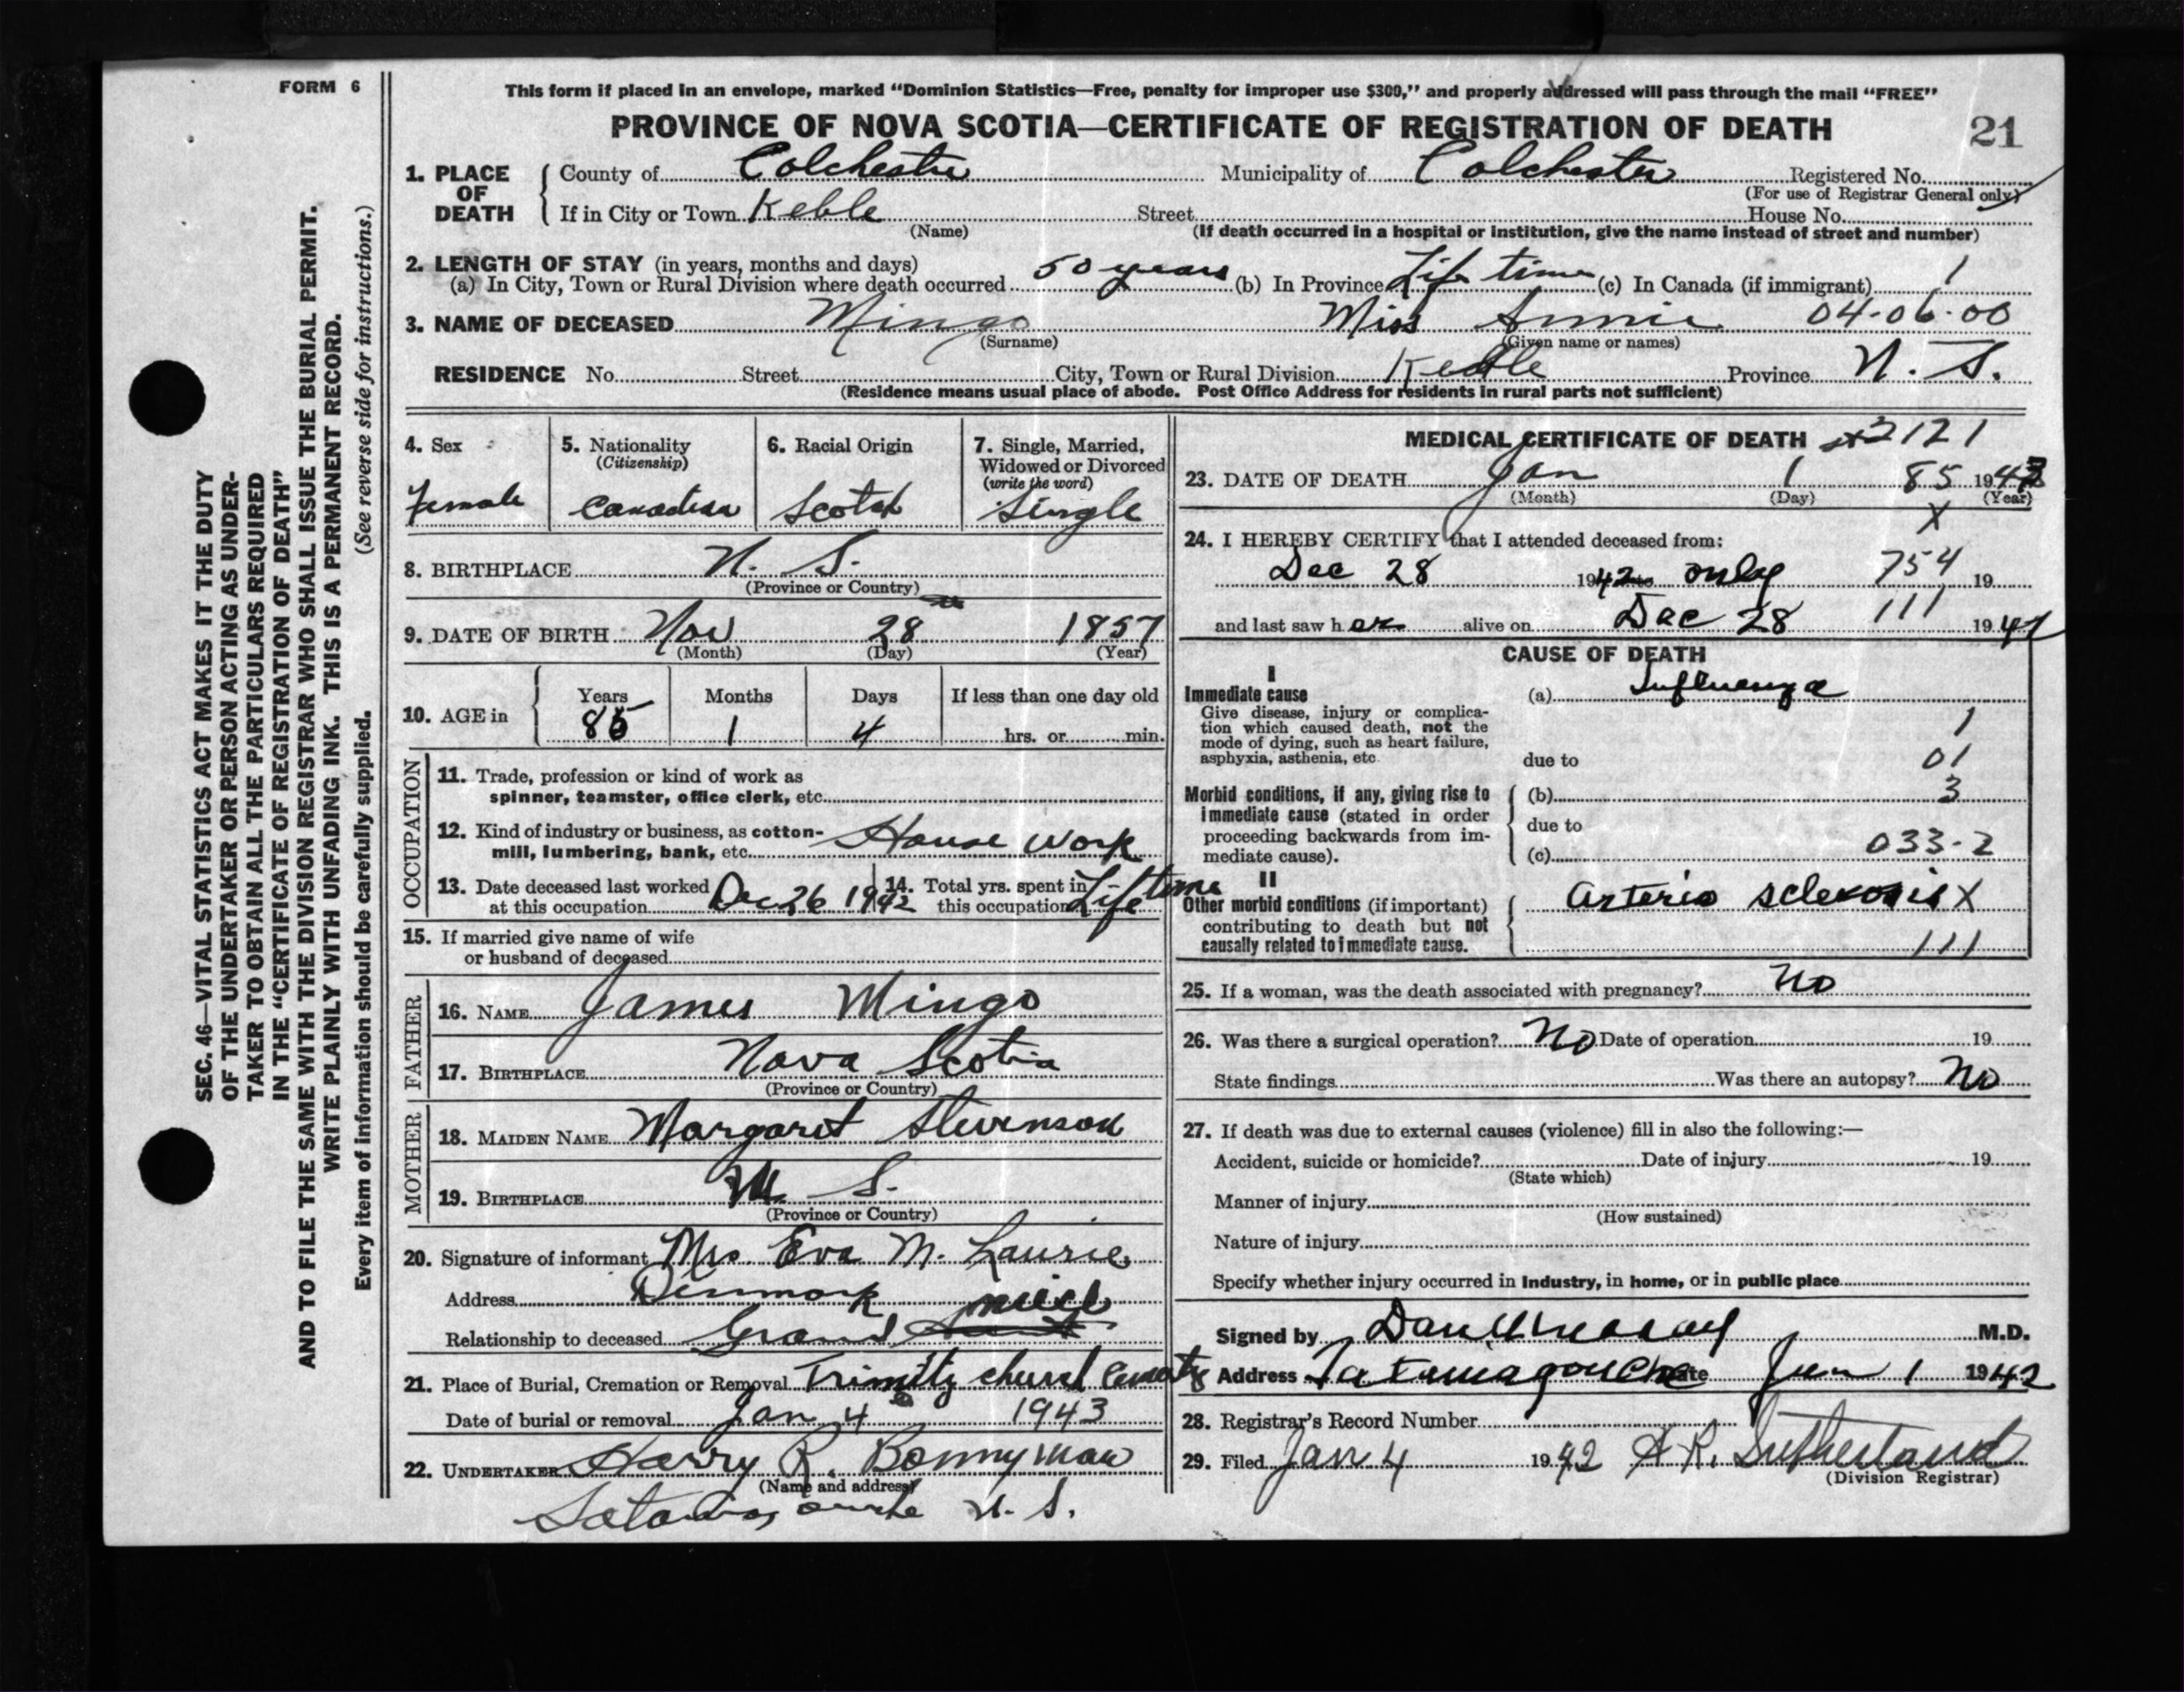 FORM 6
SEC. 46—VITAL STATISTICS ACT MAKES IT THE DUTY
OF THE UNDERTAKER OR PERSON ACTING AS UNDER-
TAKER TO OBTAIN ALL THE PARTICULARS REQUIRED
IN THE "CERTIFICATE OF REGISTRATION OF DEATH"
AND TO FILE THE SAME WITH THE DIVISION REGISTRAR WHO SHALL ISSUE THE BURIAL PERMIT.
WRITE PLAINLY WITH UNFADING INK. THIS IS A PERMANENT RECORD.
Every item of information should be carefully supplied. (See reverse side for instructions.)
This form if placed in an envelope, marked "Dominion Statistics—Free, penalty for improper use $300," and properly addressed will pass through the mail "FREE"
PROVINCE OF NOVA SCOTIA—CERTIFICATE OF REGISTRATION OF DEATH 21
1. PLACE OF DEATH County of Colchester Municipality of Colchester Registered No.
(For use of Registrar General only)
If in City or Town Keble Street House No.
(Name) (If death occurred in a hospital or institution, give the name instead of street and number)
2. LENGTH OF STAY (in years, months and days)
(a) In City, Town or Rural Division where death occurred 50 years (b) In Province Life time (c) In Canada (if immigrant) 1
3. NAME OF DECEASED Mingo Miss Annie 04-06-00
(Surname) (Given name or names)
RESIDENCE No. Street City, Town or Rural Division Keble Province N. S.
(Residence means usual place of abode. Post Office Address for residents in rural parts not sufficient)
4. Sex
female
5. Nationality
(Citizenship)
Canadian
6. Racial Origin
Scotch
7. Single, Married,
Widowed or Divorced
(write the word)
Single
8. BIRTHPLACE N. S.
(Province or Country)
9. DATE OF BIRTH Nov 28 1857
(Month) (Day) (Year)
10. AGE in
Years Months Days If less than one day old
85 1 4 hrs. or min.
OCCUPATION
11. Trade, profession or kind of work as
spinner, teamster, office clerk, etc.
12. Kind of industry or business, as cotton-
mill, lumbering, bank, etc. House Work
13. Date deceased last worked
at this occupation Dec 26 1942
14. Total yrs. spent in
this occupation Life time
15. If married give name of wife
or husband of deceased
FATHER
16. NAME James Mingo
17. BIRTHPLACE Nova Scotia
(Province or Country)
MOTHER
18. MAIDEN NAME Margaret Stevenson
19. BIRTHPLACE N S.
(Province or Country)
20. Signature of informant Mrs. Eva M. Laurie
Address Denmark
Relationship to deceased Grand niece
21. Place of Burial, Cremation or Removal Trinity church
Date of burial or removal Jan 4 1943
22. UNDERTAKER Harry R. Bonnyman
(Name and address)
N. S.
MEDICAL CERTIFICATE OF DEATH 2121
23. DATE OF DEATH Jan 1 85 1943
(Month) (Day) (Year)
X
24. I HEREBY CERTIFY that I attended deceased from:
Dec 28 1942 only 754 19
and last saw her alive on Dec 28 111 1942
CAUSE OF DEATH
I
Immediate cause
Give disease, injury or complica-
tion which caused death, not the
mode of dying, such as heart failure,
asphyxia, asthenia, etc.
(a) Influenza
1
due to 01
Morbid conditions, if any, giving rise to
immediate cause (stated in order
proceeding backwards from im-
mediate cause).
(b) 3
due to
(c) 033-2
II
Other morbid conditions (if important)
contributing to death but not
causally related to immediate cause.
Arterio sclerosis X
111
25. If a woman, was the death associated with pregnancy? No
26. Was there a surgical operation? No Date of operation 19
State findings Was there an autopsy? No
27. If death was due to external causes (violence) fill in also the following:—
Accident, suicide or homicide? Date of injury 19
(State which)
Manner of injury
(How sustained)
Nature of injury
Specify whether injury occurred in Industry, in home, or in public place
Signed by Dan M.D.
Address Tatamagouche Date Jan 1 1942
28. Registrar's Record Number
29. Filed Jan 4 1942 A R. Sutherland
(Division Registrar)